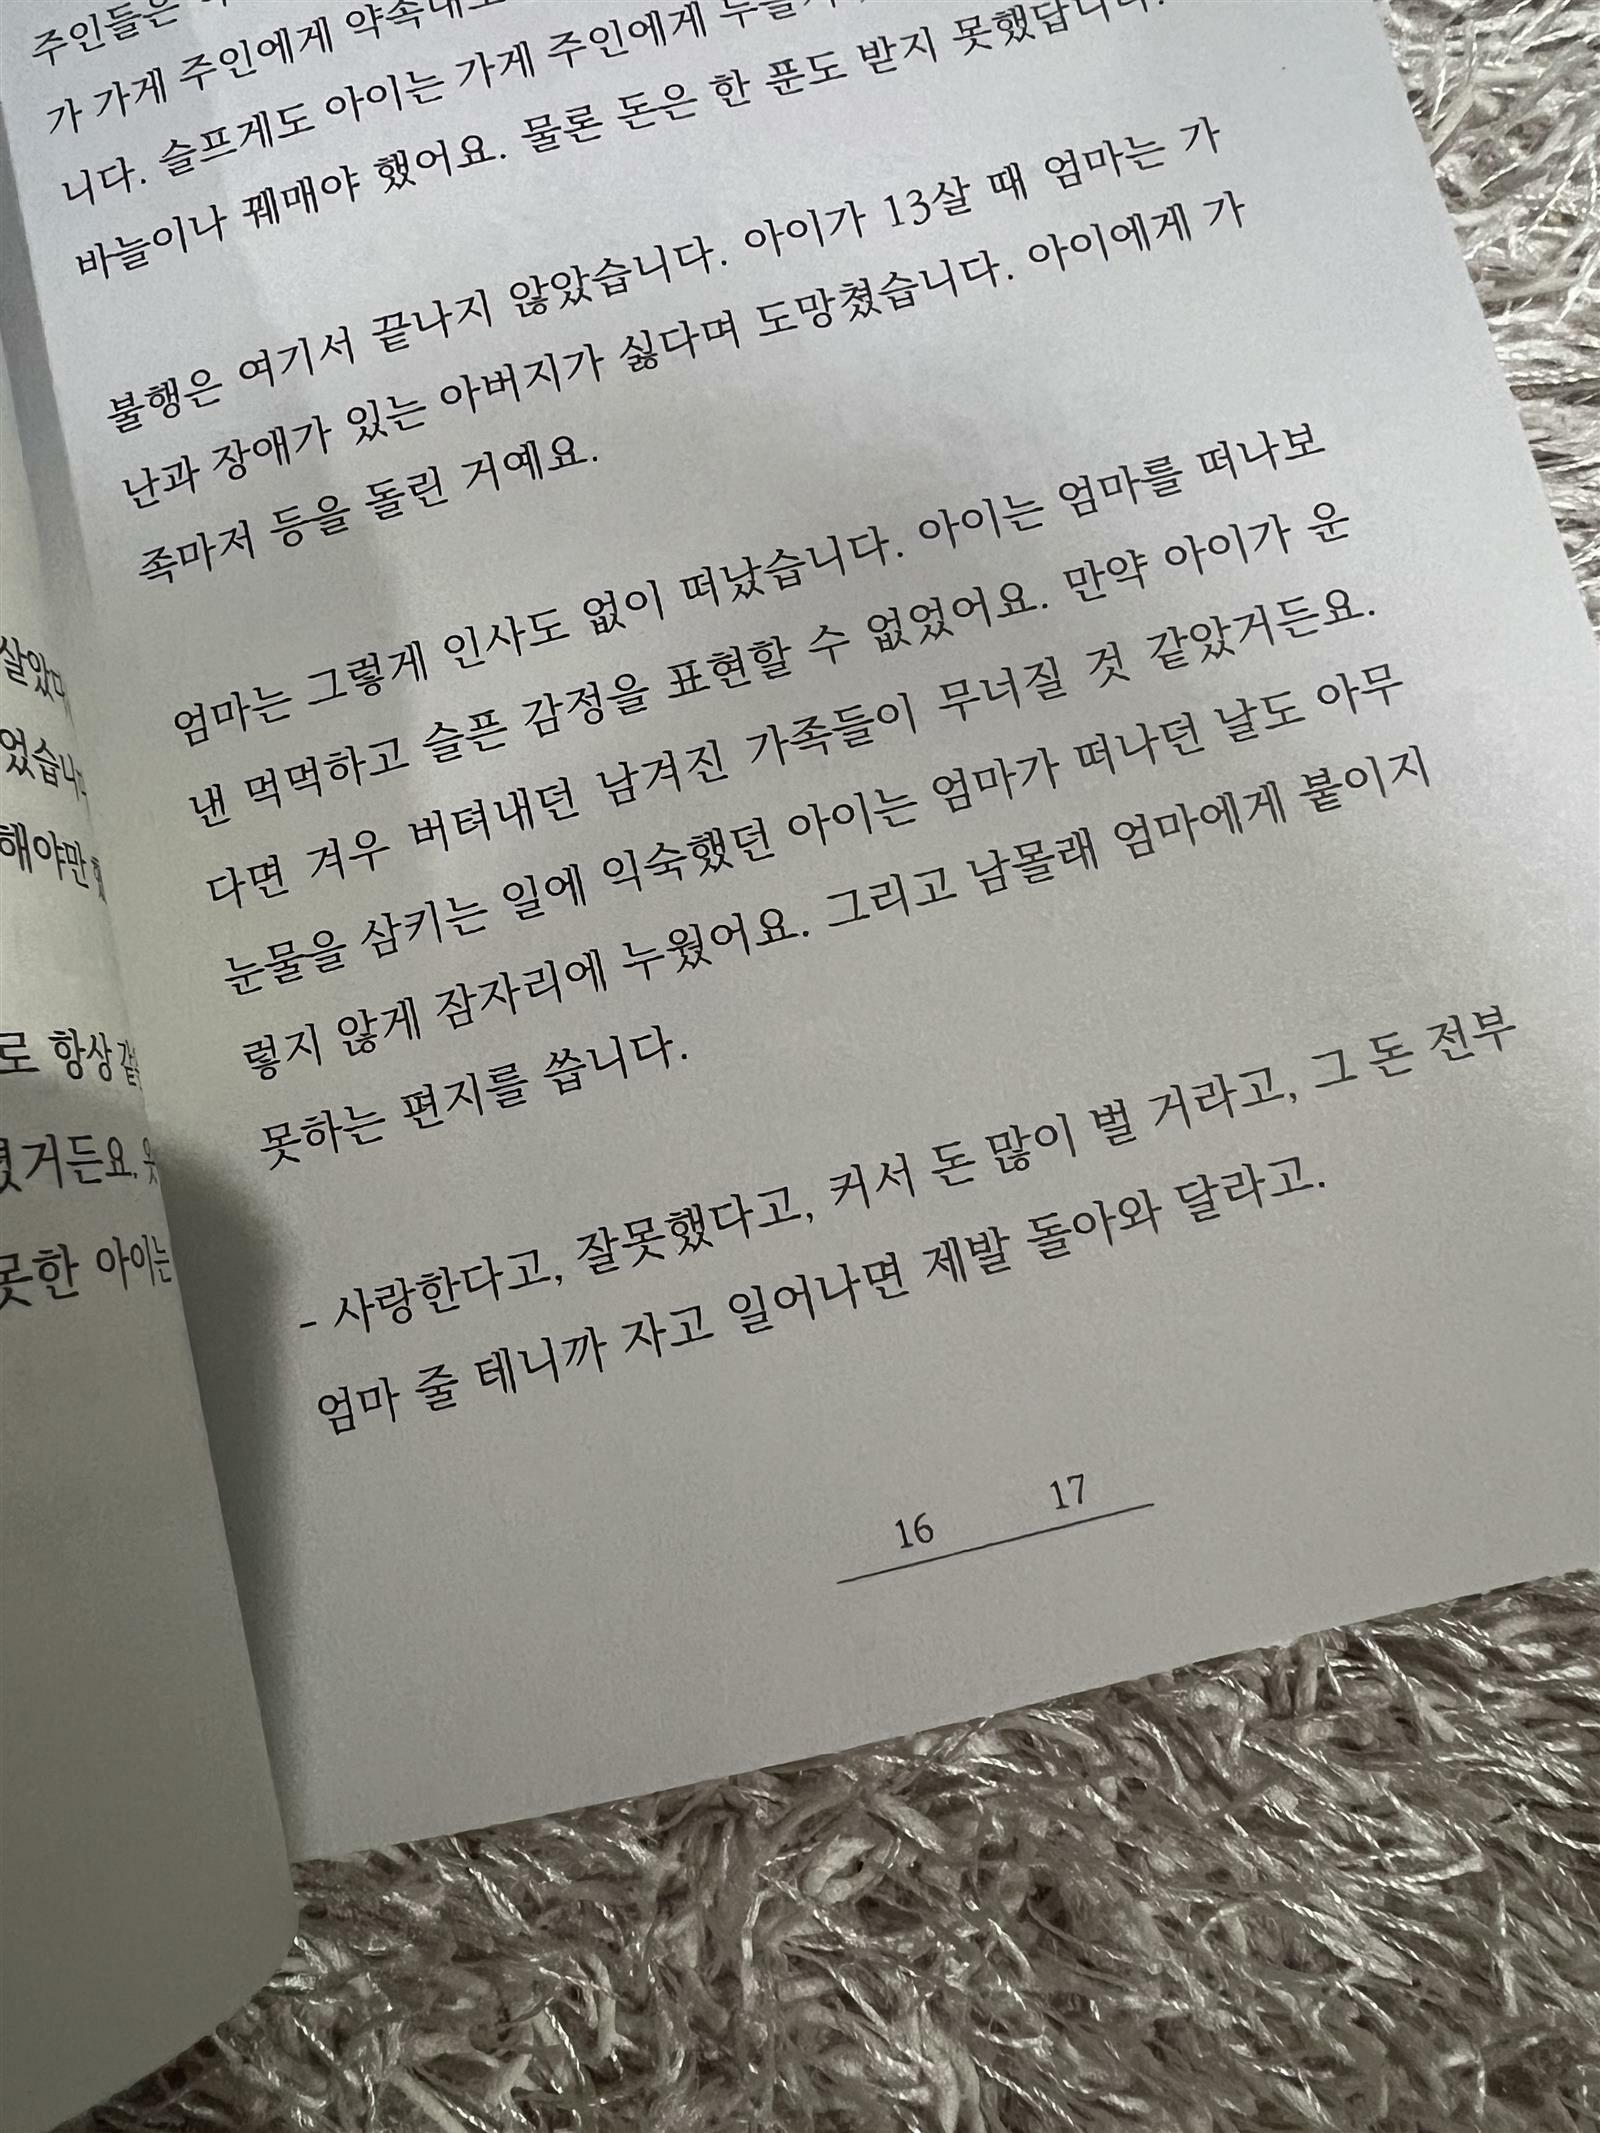 살았다
었습니다
해야만
로 항상
렸거든요.
못한 아이는
주인들은
가 가게 주인에게 약속대로
니다. 슬프게도 아이는 가게 주인에게
바늘이나 꿰매야 했어요. 물론 돈은 한 푼도 받지 못했답니다.
불행은 여기서 끝나지 않았습니다. 아이가 13살 때 엄마는 가
난과 장애가 있는 아버지가 싫다며 도망쳤습니다. 아이에게 가
족마저 등을 돌린 거예요.
엄마는 그렇게 인사도 없이 떠났습니다. 아이는 엄마를 떠나보
낸 먹먹하고 슬픈 감정을 표현할 수 없었어요. 만약 아이가 운
다면 겨우 버텨내던 남겨진 가족들이 무너질 것 같았거든요.
눈물을 삼키는 일에 익숙했던 아이는 엄마가 떠나던 날도 아무
렇지 않게 잠자리에 누웠어요. 그리고 남몰래 엄마에게 붙이지
못하는 편지를 씁니다.
- 사랑한다고, 잘못했다고, 커서 돈 많이 벌 거라고, 그 돈 전부
엄마 줄 테니까 자고 일어나면 제발 돌아와 달라고.
16 17